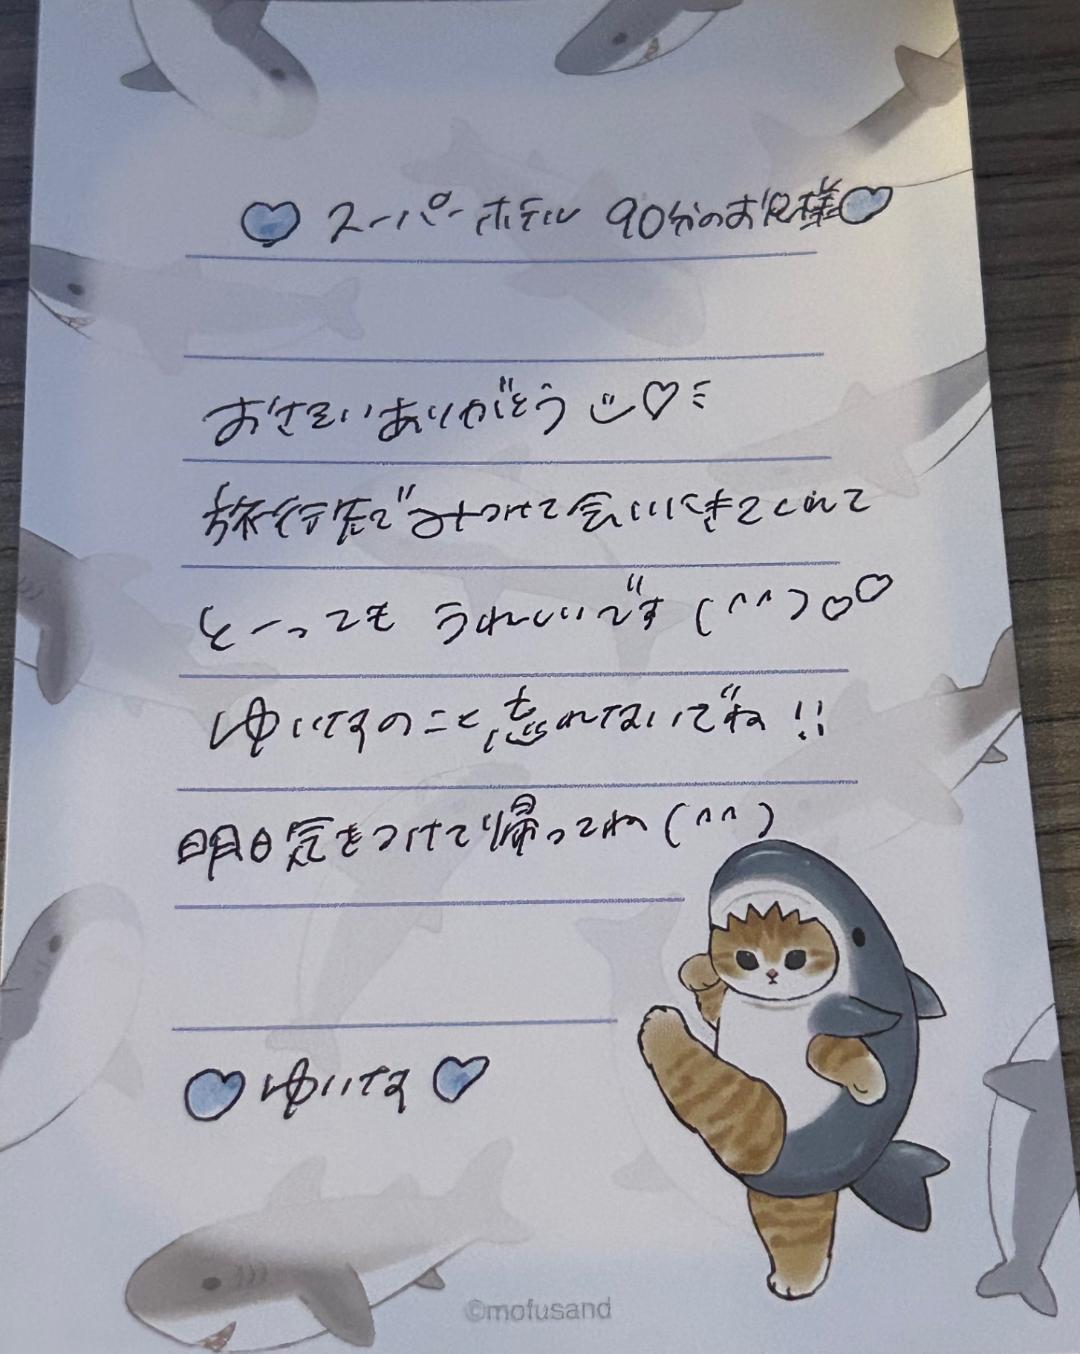 ♡ スーパーホテル 90分のお兄様♡
おさそいありがとう ♡
旅行先でみつけて会いにきてくれて
とーっても うれしいです (^^)♡♡
ゆいなのこと忘れないでね !!
明日気をつけて帰ってね (^^)
♡ ゆいな ♡
©mofusand